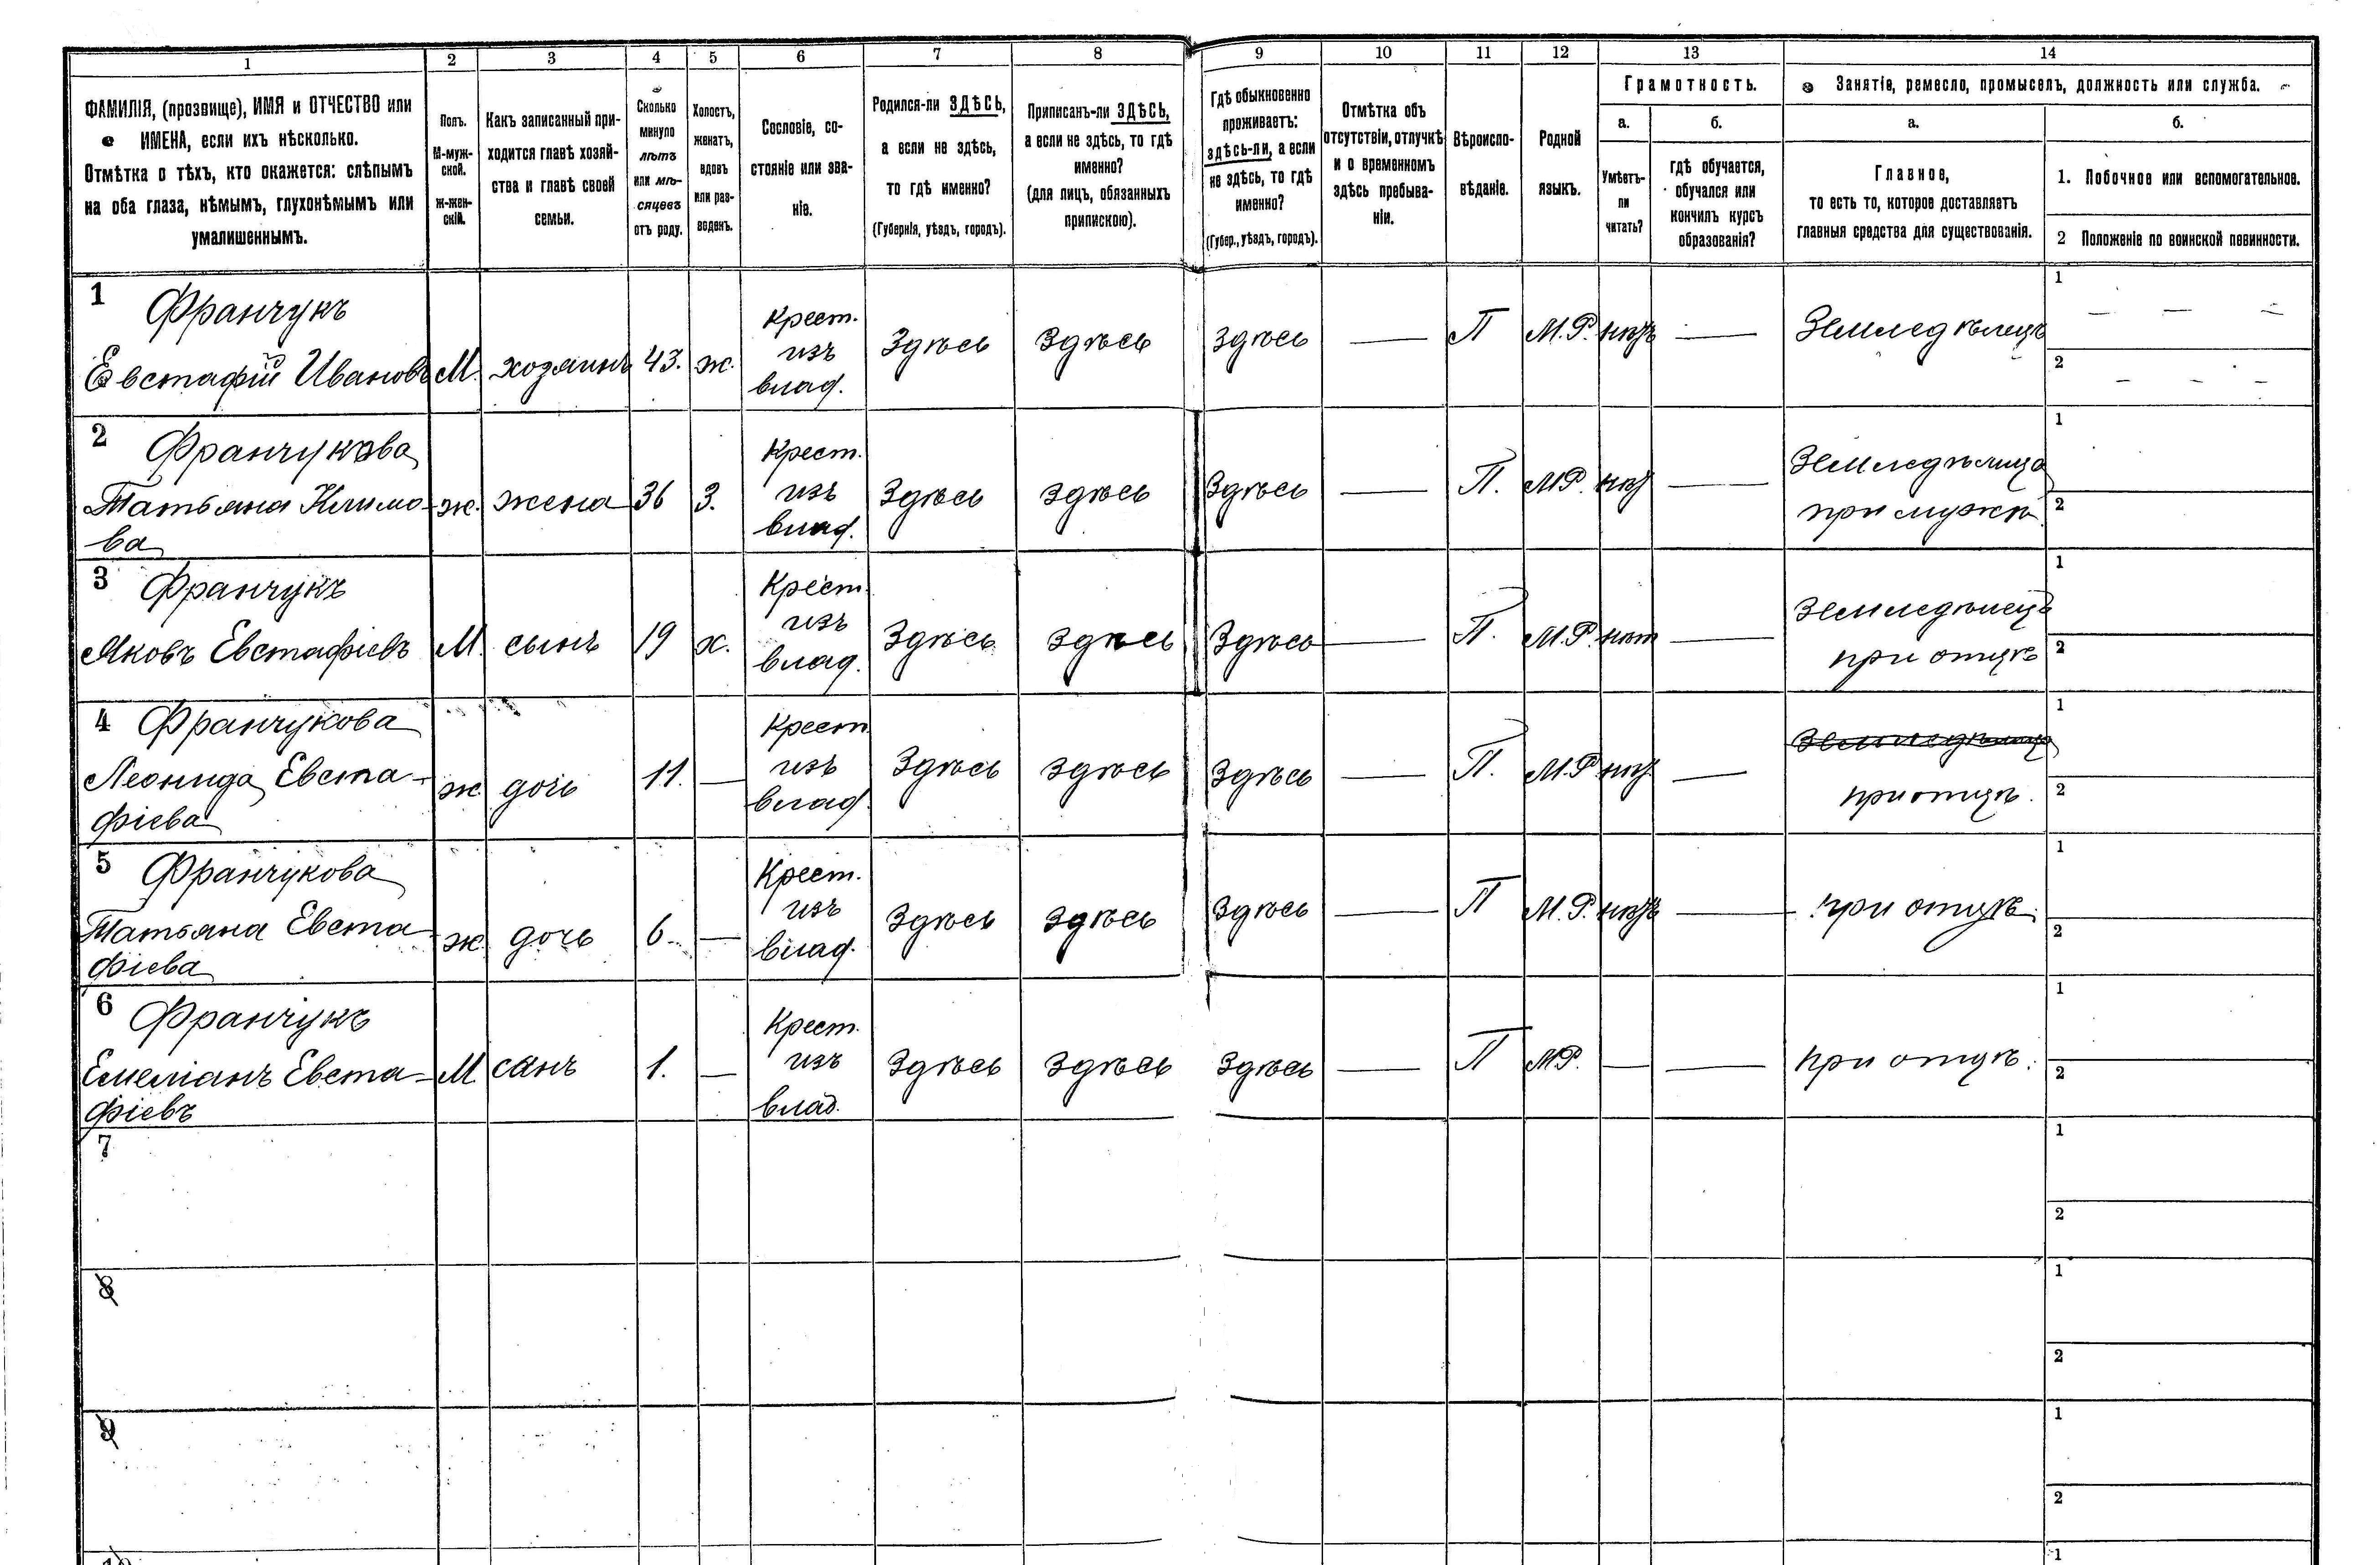 1 2 3 4 5 6 7 8 9 10 11 12 13 14
ФАМИЛІЯ, (прозвище), ИМЯ и ОТЧЕСТВО или
ИМЕНА, если ихъ нѣсколько.
Отмѣтка о тѣхъ, кто окажется: слѣпымъ
на оба глаза, нѣмымъ, глухонѣмымъ или
умалишеннымъ.
Полъ.
М-муж-
ской.
ж-жен-
скій.
Какъ записанный при-
ходится главѣ хозяй-
ства и главѣ своей
семьи.
Сколько
минуло
лѣтъ
или мѣ-
сяцевъ
отъ роду.
Холостъ,
женатъ,
вдовъ
или раз-
веденъ.
Сословіе, со-
стояніе или зва-
ніе.
Родился-ли ЗДѢСЬ,
а если не здѣсь,
то гдѣ именно?
(Губернія, уѣздъ, городъ).
Приписанъ-ли ЗДѢСЬ,
а если не здѣсь, то гдѣ
именно?
(для лицъ, обязанныхъ
припискою).
Гдѣ обыкновенно
проживаетъ:
здѣсь-ли, а если
не здѣсь, то гдѣ
именно?
(Губер., уѣздъ, городъ).
Отмѣтка объ
отсутствіи, отлучкѣ
и о временномъ
здѣсь пребыва-
ніи.
Вѣроиспо-
вѣданіе.
Родной
языкъ.
Грамотность.
а.
Умѣетъ-
ли
читать?
б.
гдѣ обучается,
обучался или
кончилъ курсъ
образованія?
Занятіе, ремесло, промыселъ, должность или служба.
а.
Главное,
то есть то, которое доставляетъ
главныя средства для существованія.
б.
1. Побочное или вспомогательное.
2 Положеніе по воинской повинности.
1 Франчукъ
Евстафій Ивановъ
М.
хозяинъ
43.
ж.
Крест.
изъ
влад.
Здѣсь
Здѣсь
Здѣсь
—
П
М.Р.
нѣтъ
—
Земледѣлецъ
1 — — —
2 — — —
2 Франчукова
Татьяна Климо-
ва
ж.
жена
36
З.
Крест.
изъ
влад.
Здѣсь
Здѣсь
Здѣсь
—
П.
М.Р.
нѣт
—
Земледѣлица
при мужѣ
1
2
3 Франчукъ
Яковъ Евстафіевъ
М.
сынъ
19
х.
Крест.
изъ
влад.
Здѣсь
Здѣсь
Здѣсь
—
П.
М.Р.
нѣт
—
Земледѣлецъ
при отцѣ
1
2
4 Франчукова
Леонида Евста-
фіева
ж.
дочь
11.
—
Крест.
изъ
влад.
Здѣсь
Здѣсь
Здѣсь
—
П.
М.Р.
нѣт
—
Земледѣлица
при отцѣ.
1
2
5 Франчукова
Татьяна Евста
фіева
ж
дочь
6.
—
Крест.
изъ
влад.
Здѣсь
Здѣсь
Здѣсь
—
П
М.Р.
нѣтъ
—
при отцѣ.
1
2
6 Франчукъ
Емеліанъ Евста-
фіевъ
М
сынъ
1.
—
Крест.
изъ
влад.
Здѣсь
Здѣсь
Здѣсь
—
П
М.Р.
—
—
при отцѣ.
1
2
7
1
2
8
1
2
9
1
2
10
1